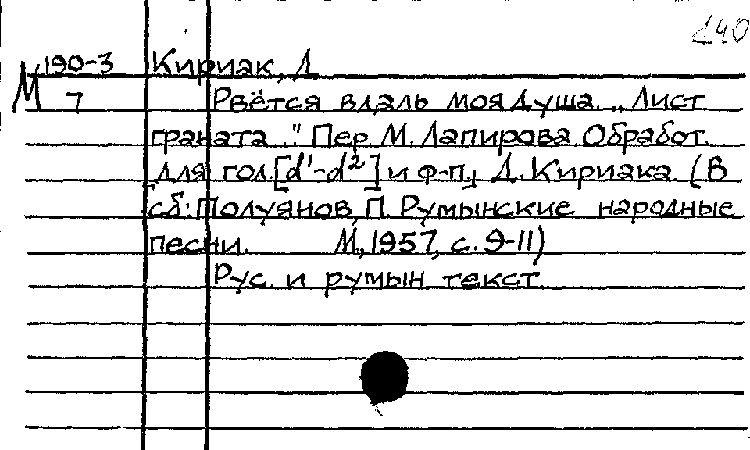 240
М 190-3 Кириак, Д
7 Рвётся вдаль моя душа. „Лист
граната." Пер М. Лапирова Обработ.
для гол.[d¹-d²] и ф-п., Д. Кириака. (В
сб: Полуянов, П. Румынские народные
песни. М, 1957, с. 9-11)
Рус. и румын. текст.